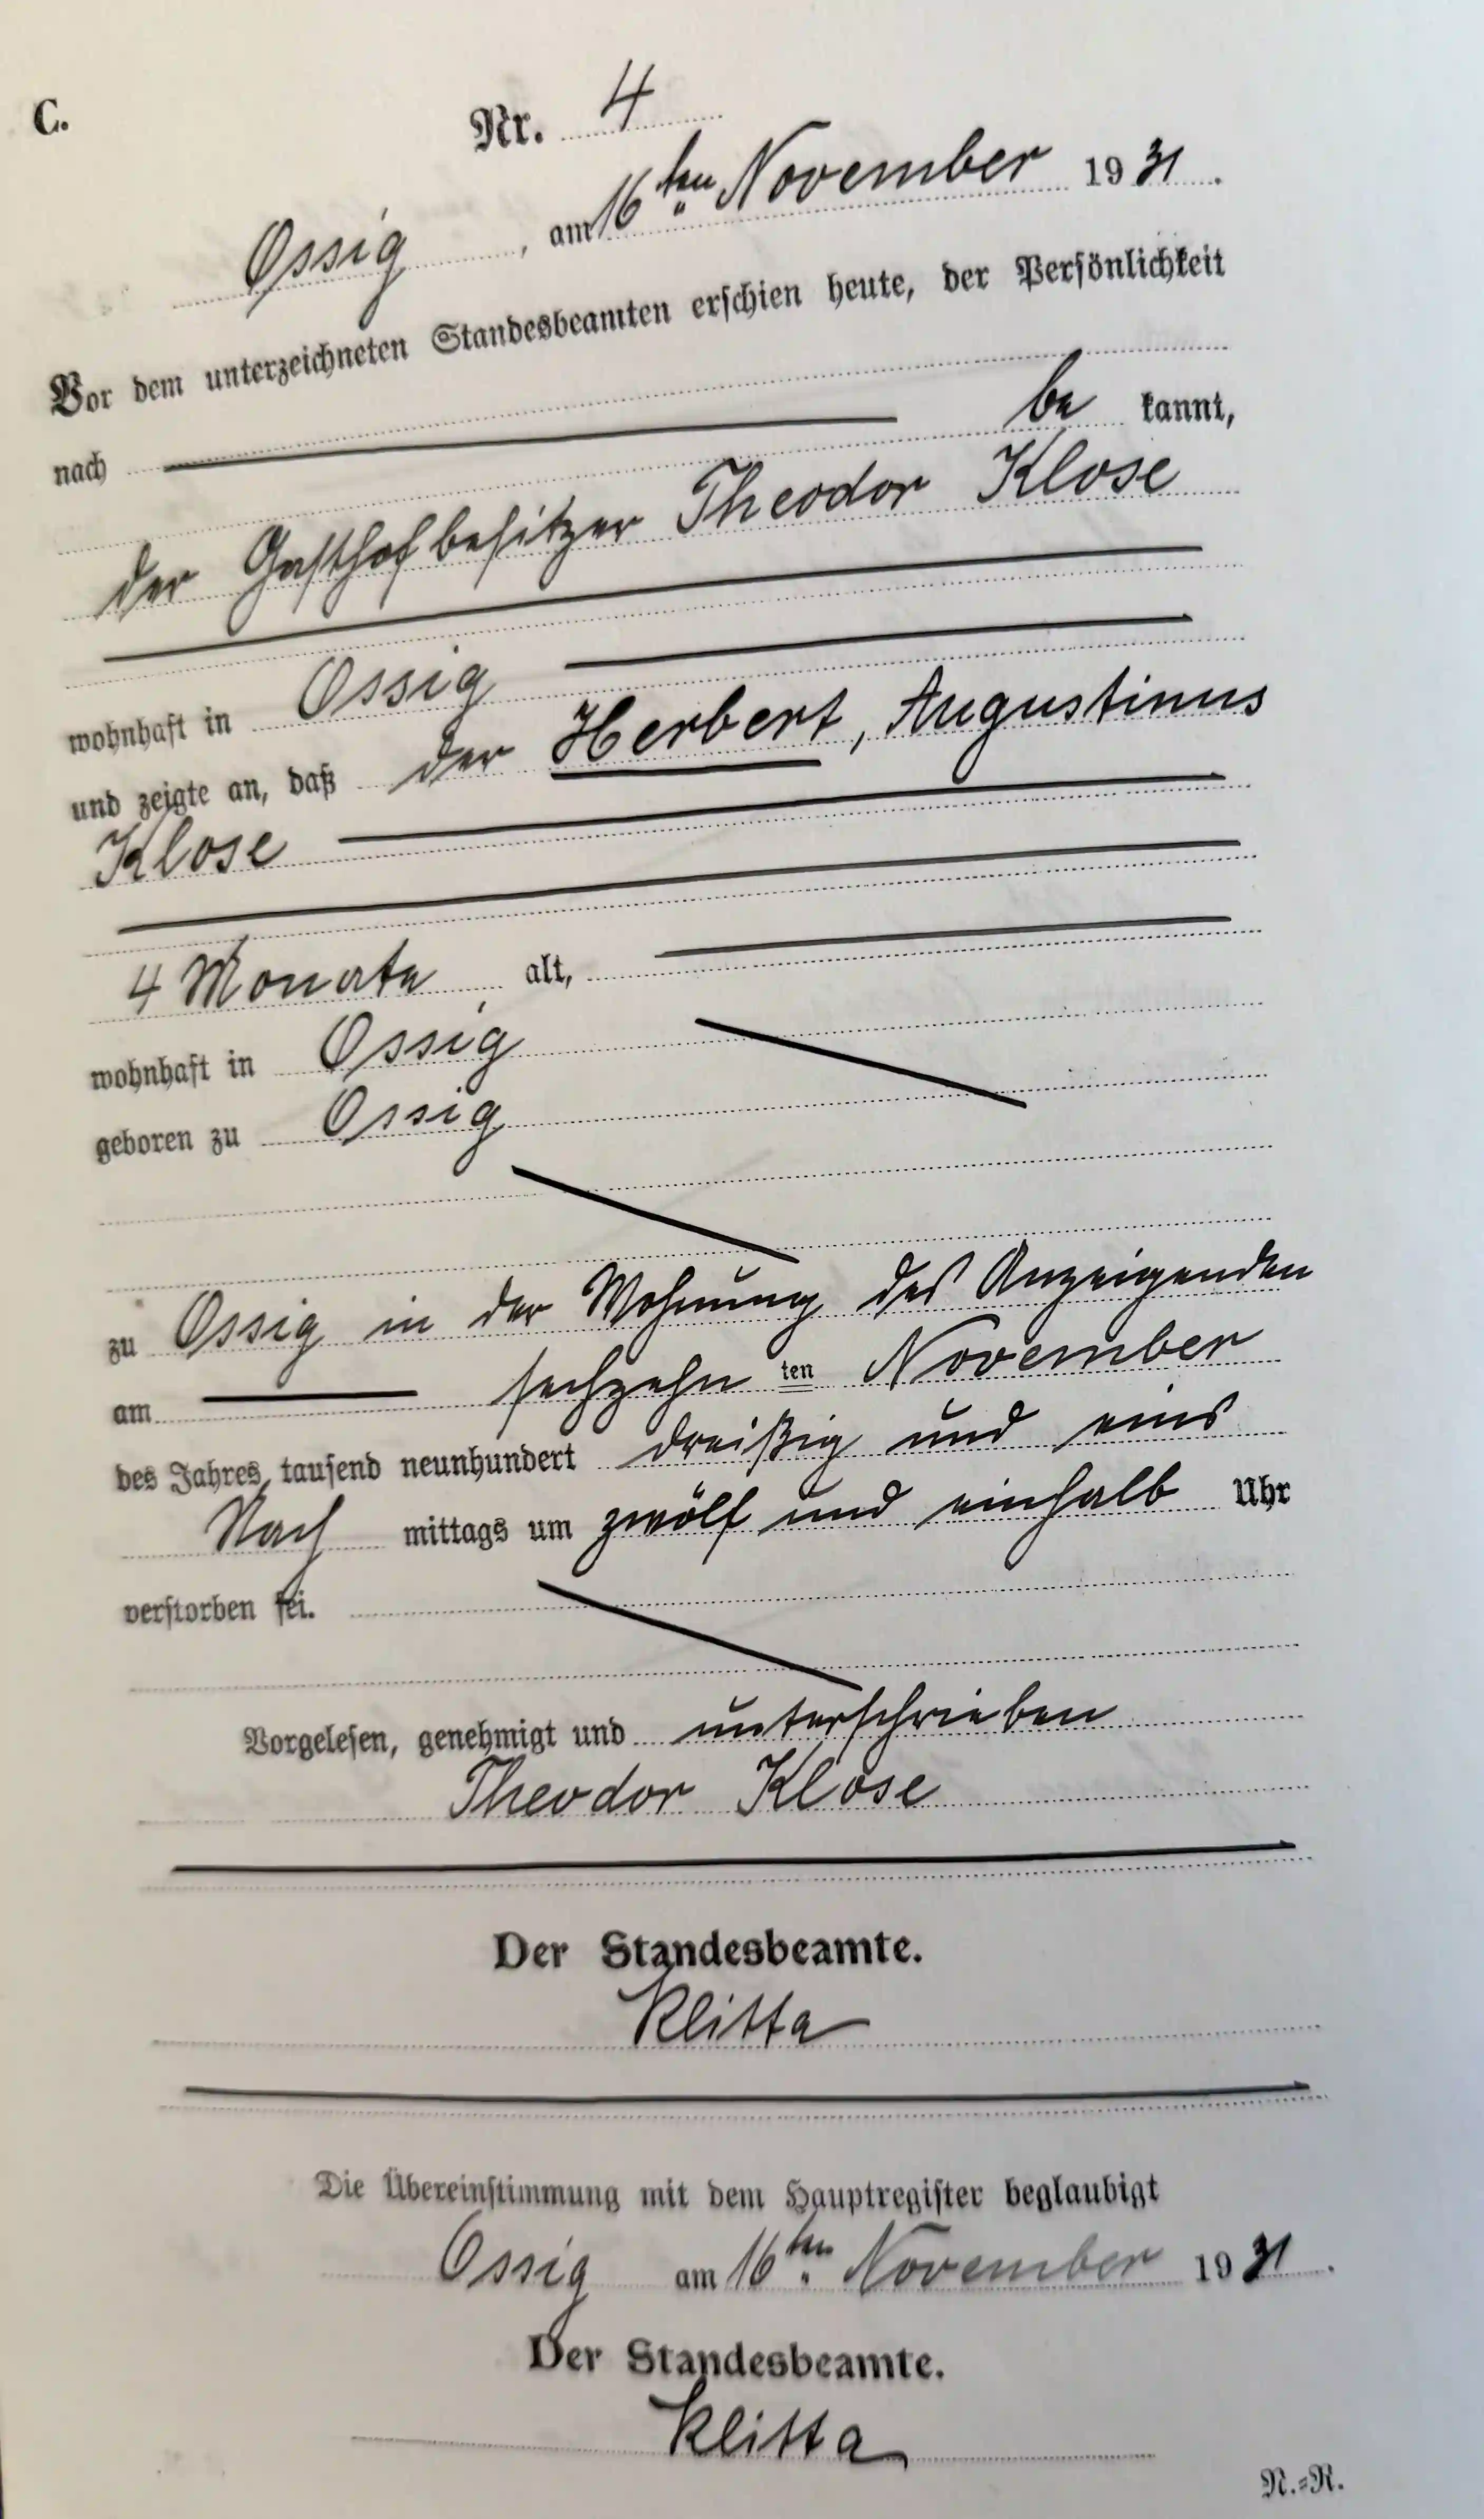 C.
Nr. 4
Ossig, am 16ten November 1931.
Vor dem unterzeichneten Standesbeamten erschien heute, der Persönlichkeit
nach be kannt,
der Gasthofbesitzer Theodor Klose
wohnhaft in Ossig
und zeigte an, daß der Herbert, Augustinus
Klose
4 Monate alt,
wohnhaft in Ossig
geboren zu Ossig
zu Ossig in der Wohnung des Anzeigenden
am sechzehn ten November
des Jahres tausend neunhundert dreißig und eins
Nach mittags um zwölf und einhalb Uhr
verstorben sei.
Vorgelesen, genehmigt und unterschrieben
Theodor Klose
Der Standesbeamte.
Klitta
Die Übereinstimmung mit dem Hauptregister beglaubigt
Ossig am 16ten November 1931.
Der Standesbeamte.
Klitta
N.=R.